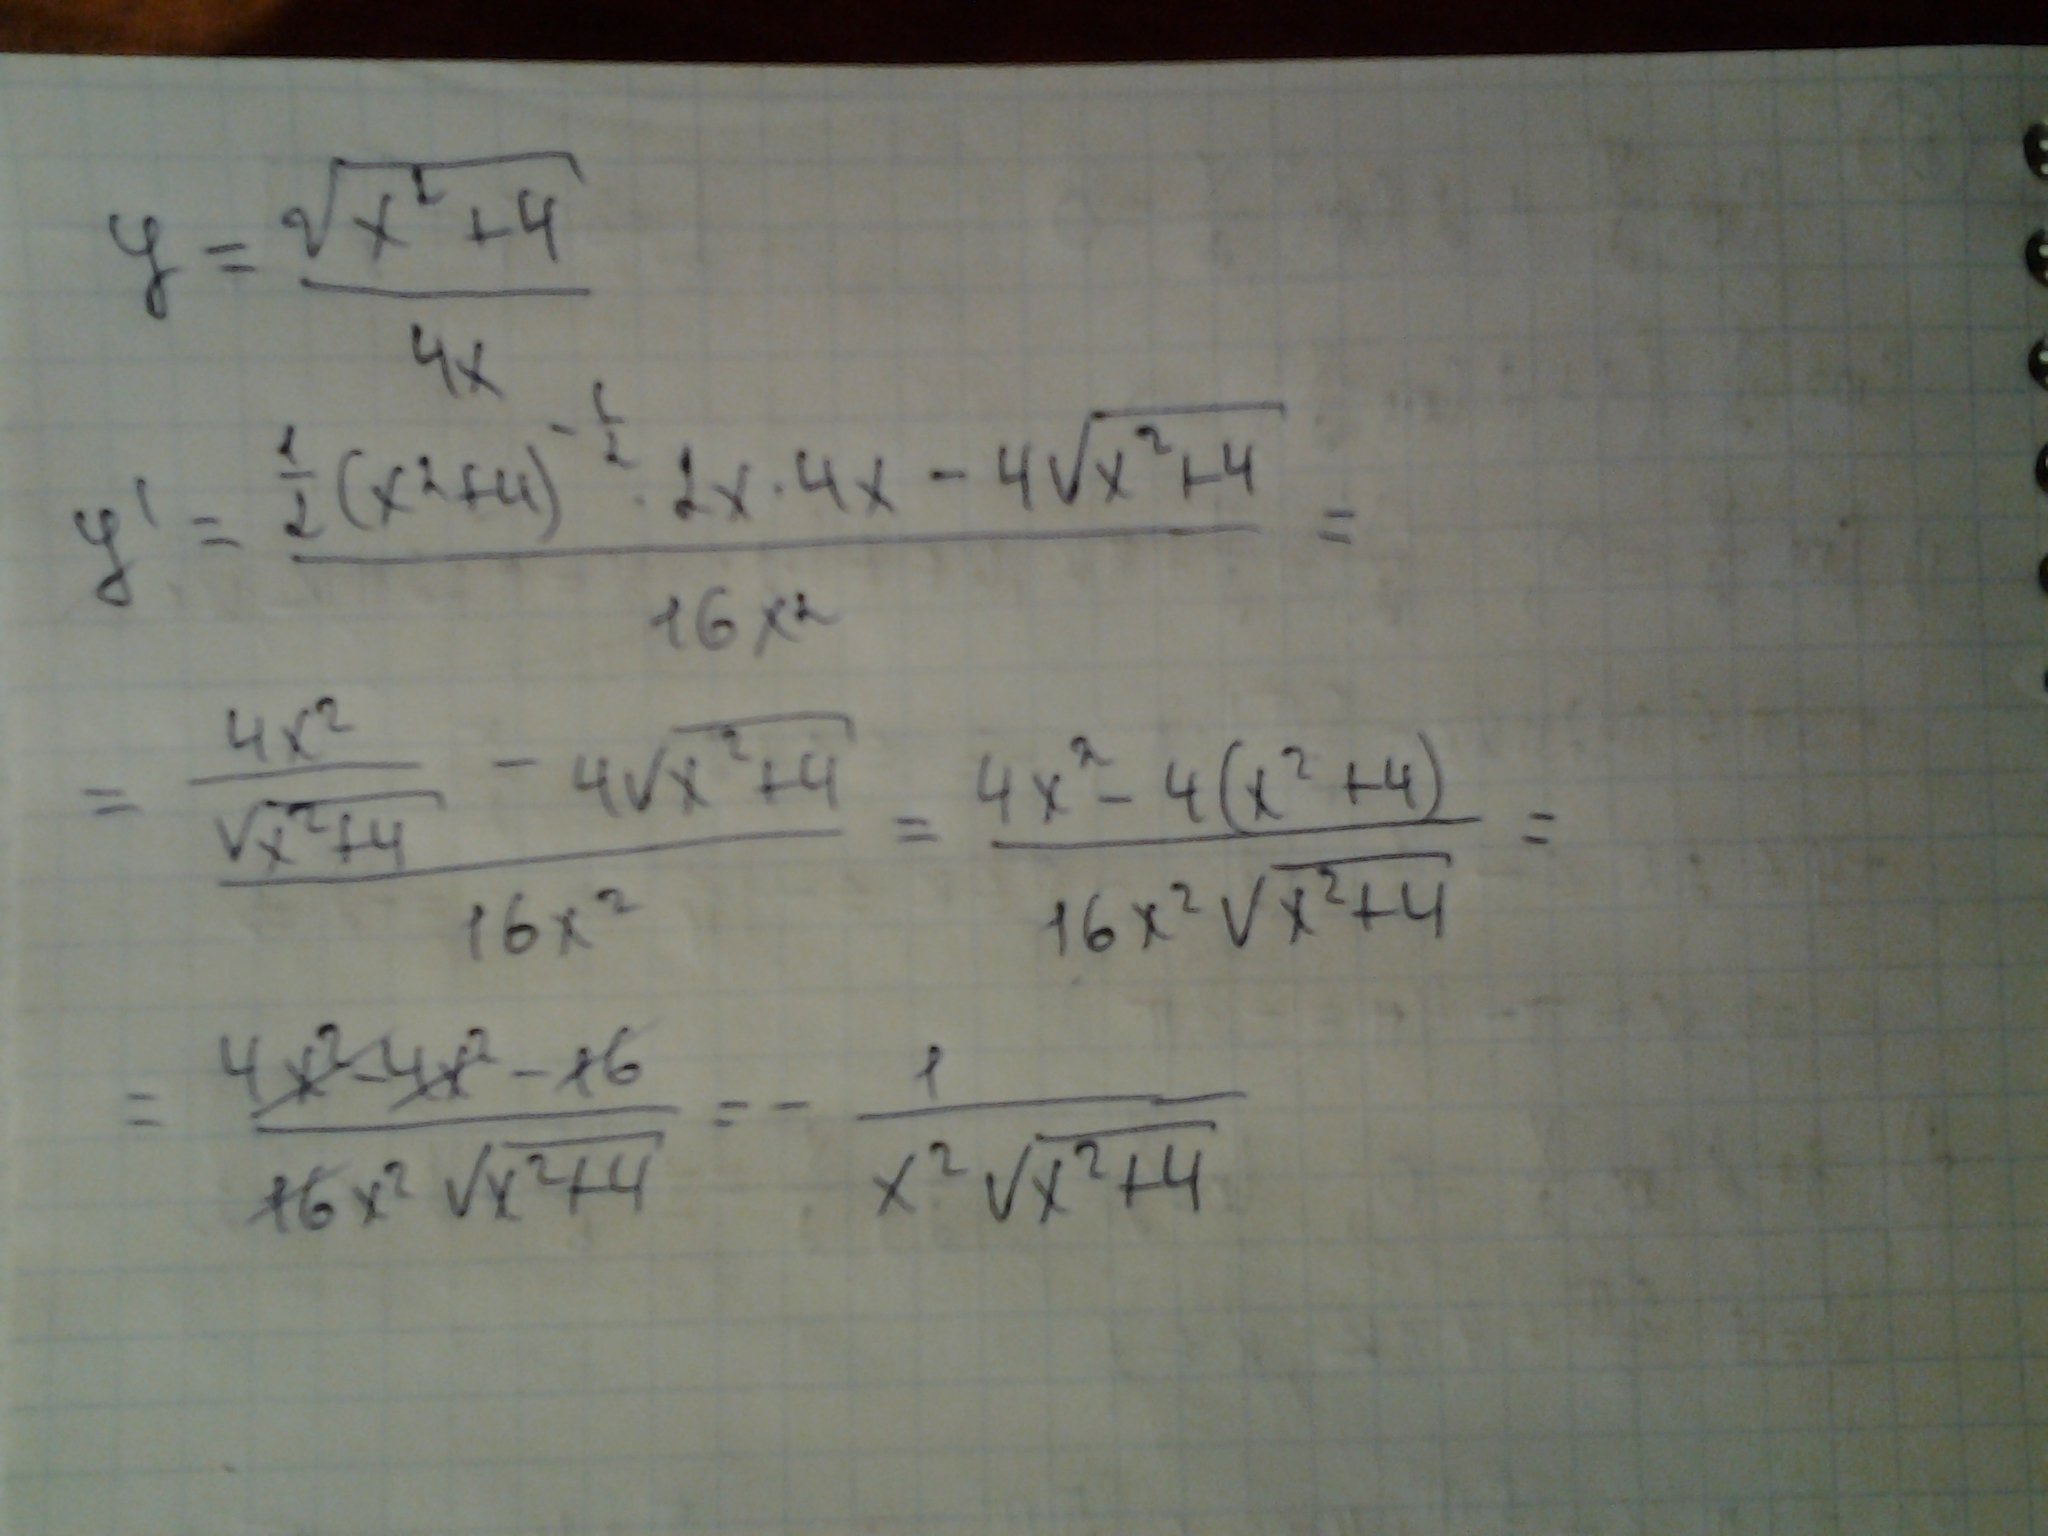 y = √(x²+4) / 4x
y' = (1/2 (x²+4)^(-1/2) · 2x · 4x - 4√(x²+4)) / 16x² =
= (4x² / √(x²+4) - 4√(x²+4)) / 16x² = (4x² - 4(x²+4)) / (16x² √(x²+4)) =
= (4x² - 4x² - 16) / (16x² √(x²+4)) = - 1 / (x² √(x²+4))